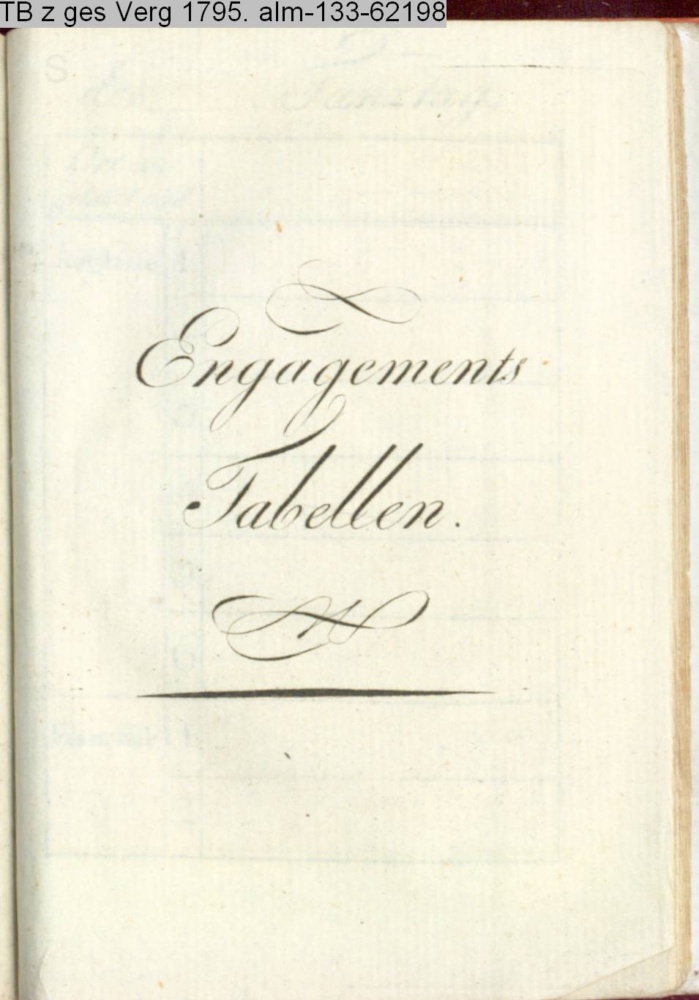 TB z ges Verg 1795. alm-133-62198
Engagements
Tabellen.